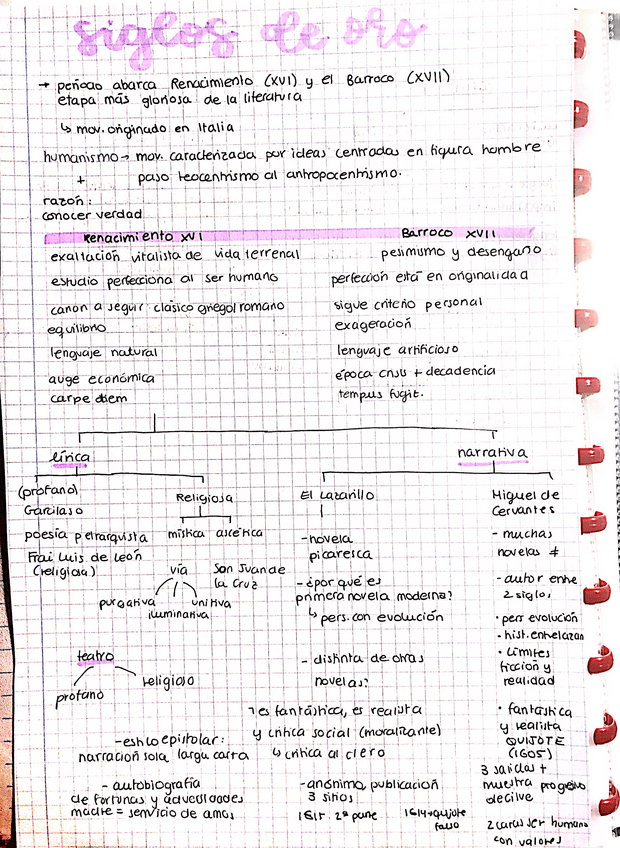 siglos de oro
→ periodo abarca Renacimiento (XVI) y el Barroco (XVII)
etapa más gloriosa de la literatura
↳ mov. originado en Italia
humanismo → mov. caracterizada por ideas centradas en figura hombre
+ paso teocentrismo al antropocentrismo.
razón:
conocer verdad
Renacimiento XVI
Barroco XVII
exaltación vitalista de vida terrenal
pesimismo y desengaño
estudio perfecciona al ser humano
perfección está en originalidad
canon a seguir clásico griego/romano
sigue criterio personal
equilibrio
exageración
lenguaje natural
lenguaje artificioso
auge económica
época crisis + decadencia
carpe diem
tempus fugit.
lírica
narrativa
(profano)
Garcilaso
poesía petrarquista
Frai Luis de León
(religiosa)
Religiosa
mística ascética
vía
San Juan de
la Cruz
purgativa
iluminativa
unitiva
teatro
profano
religioso
El Lazarillo
-novela
picaresca
-¿por qué es
primera novela moderna?
↳ pers. con evolución
- distinta de otras
novelas?
no es fantástica, es realista
y crítica social (moralizante)
↳ crítica al clero
-estilo epistolar:
narración sola larga carta
- autobiografía
de fortunas y adversidades
madre = servicio de amos
-anónimo, publicación
3 sitios
1615 2ª parte
1614→quijote
falso
Miguel de
Cervantes
- muchas
novelas ≠
-autor entre
2 siglos
• pers evolución
• hist. entrelazan
• Límites
ficción y
realidad
• fantástica
y realista
QUIJOTE
(1605)
3 salidas +
muestra progresivo
declive
2 caras ser humano
con valores